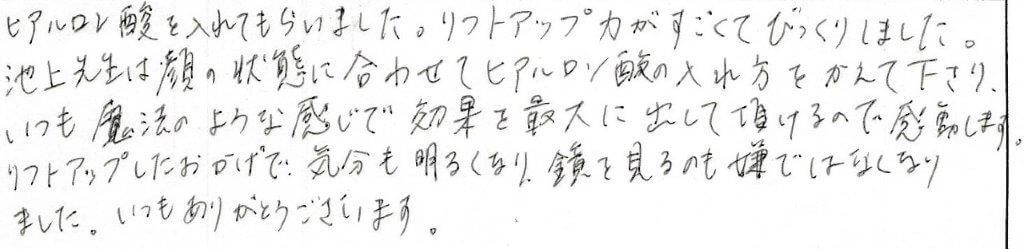 ヒアルロン酸を入れてもらいました。リフトアップ力がすごくてびっくりしました。
池上先生は顔の状態に合わせてヒアルロン酸の入れ方をかえて下さり、
いつも魔法のような感じで効果を最大に出して頂けるので感動します。
リフトアップしたおかげで、気分も明るくなり、鏡を見るのも嫌ではなくなり
ました。いつもありがとうございます。